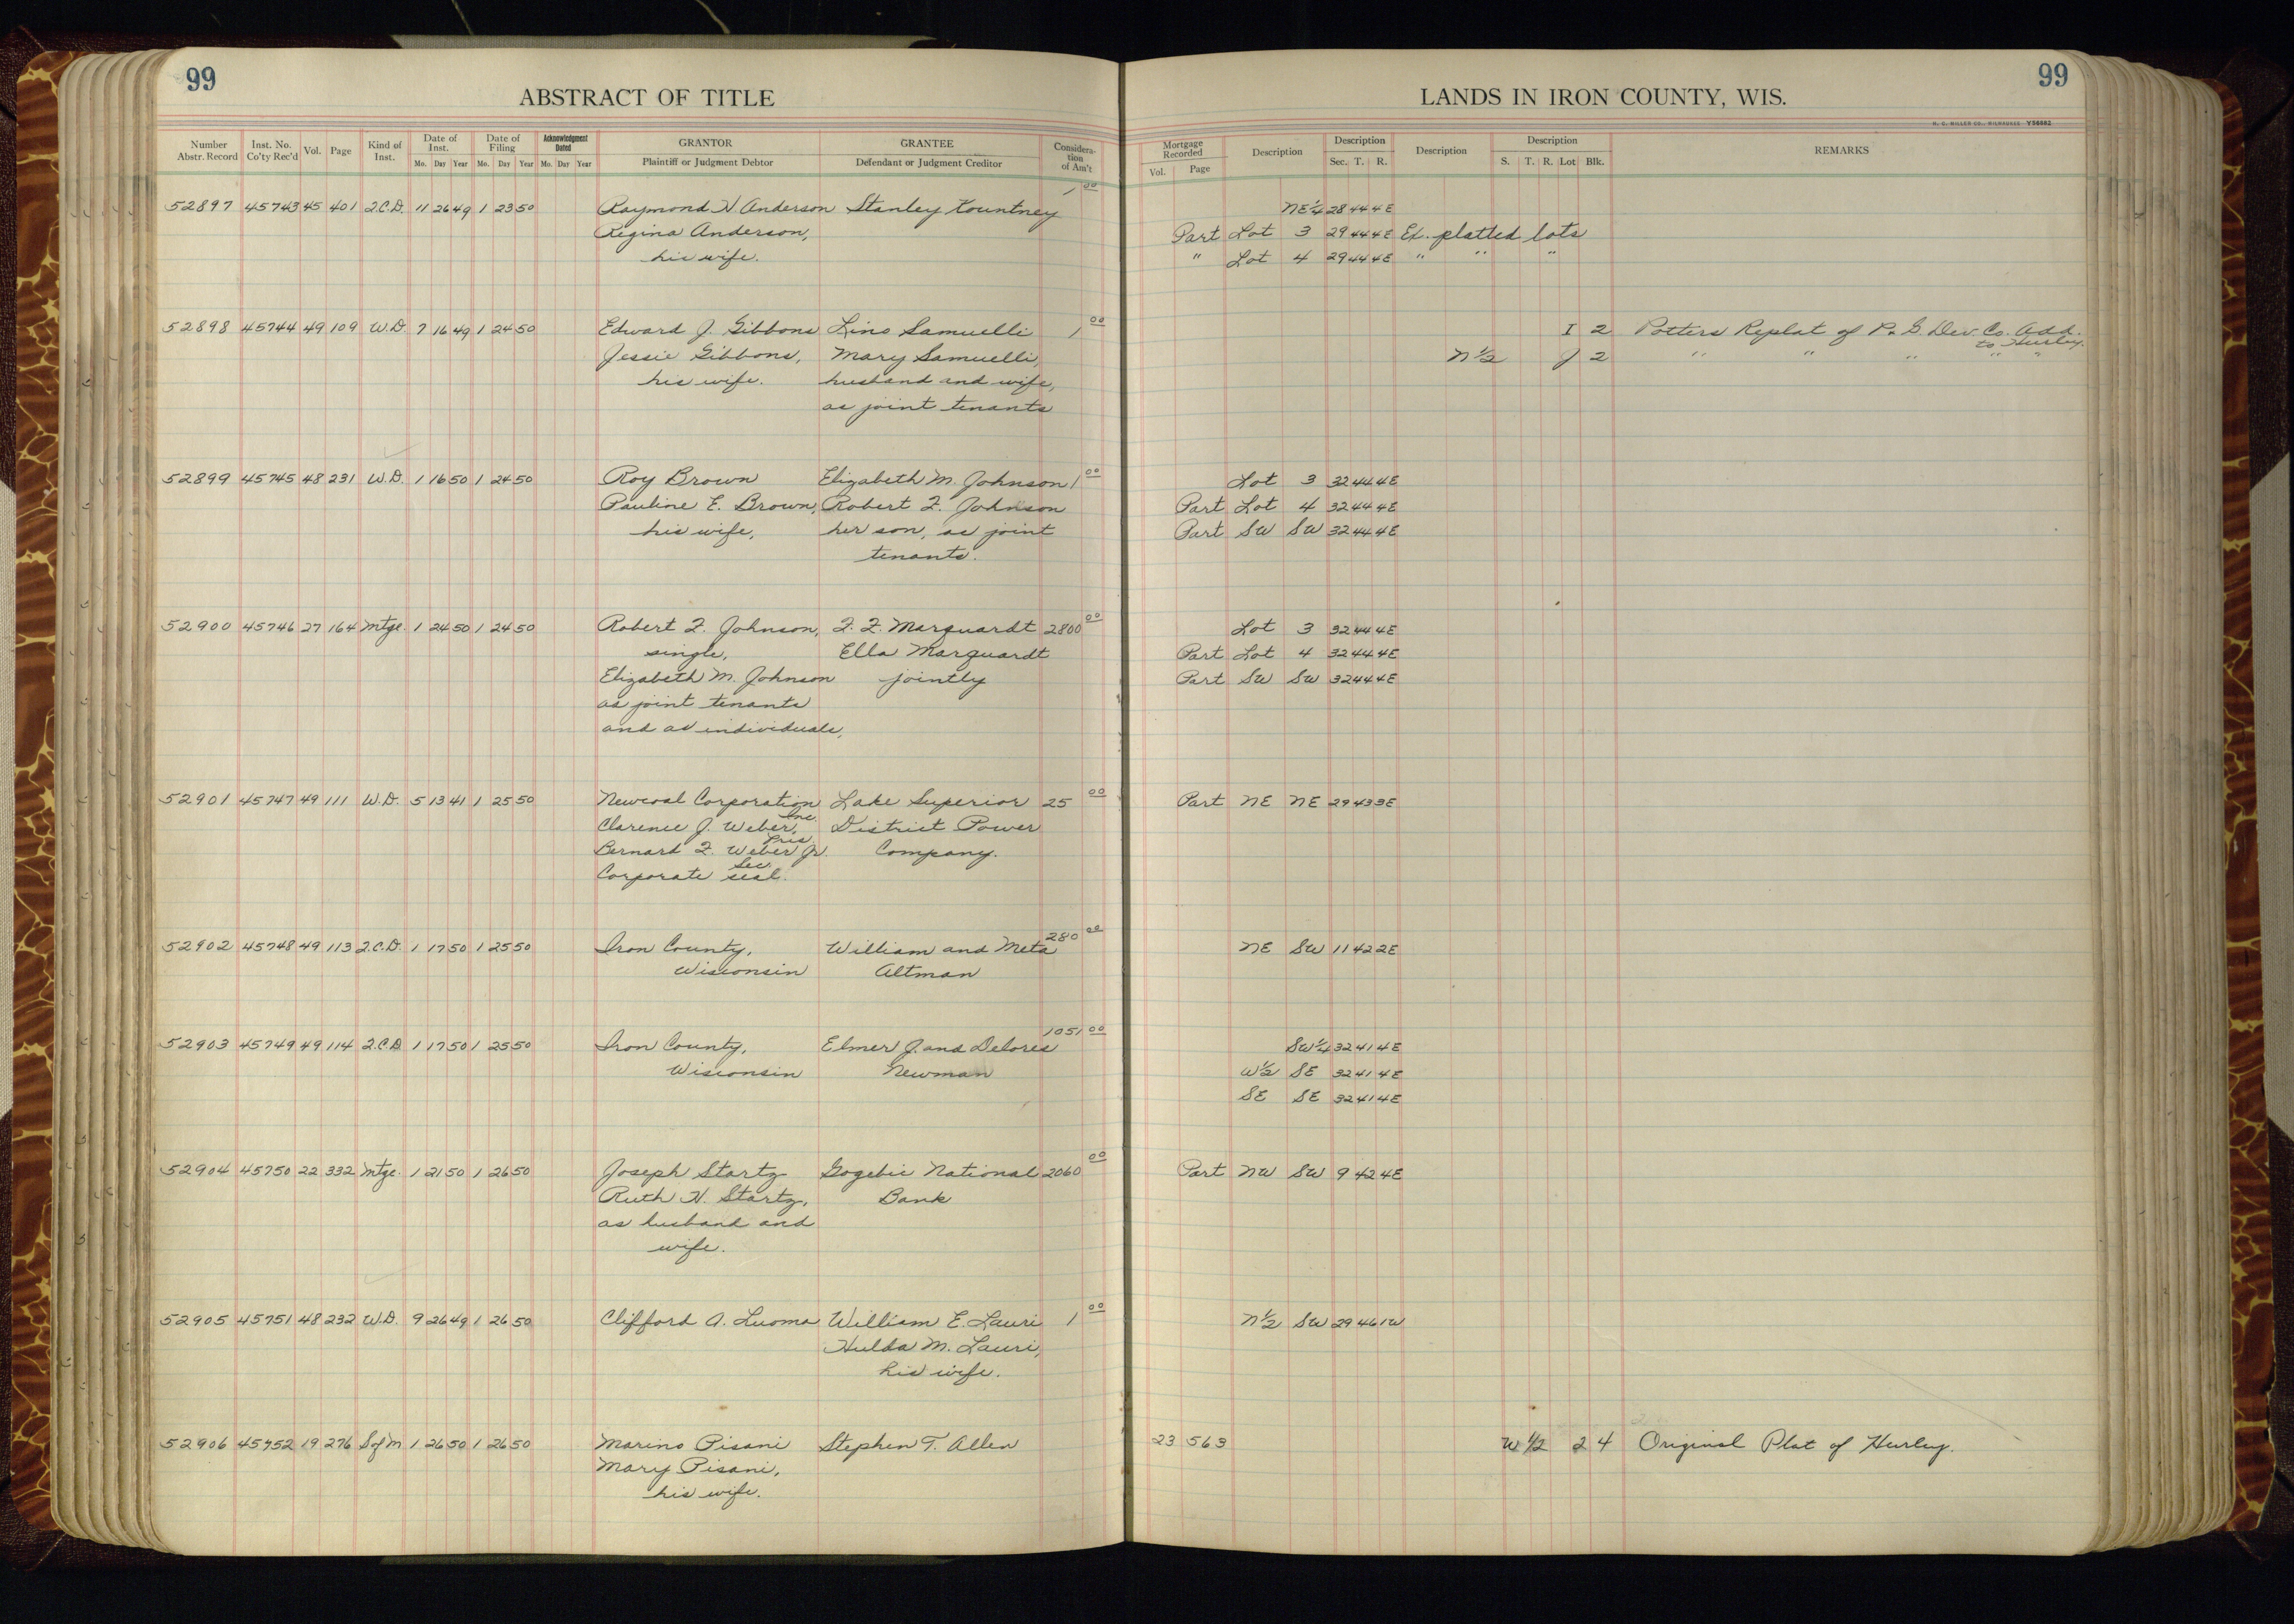 99
ABSTRACT OF TITLE
Number Abstr. Record Inst. No. Co'ty Rec'd Vol. Page Kind of Inst. Date of Inst. Date of Filing Acknowledgment Dated GRANTOR GRANTEE Consideration of Am't
Mo. Day Year Mo. Day Year Mo. Day Year Plaintiff or Judgment Debtor Defendant or Judgment Creditor
52897 45743 45 401 Q.C.D. 11 26 49 1 23 50 Raymond H Anderson Stanley Kountney 1 00
Regina Anderson,
his wife.
52898 45744 49 109 W.D. 7 16 49 1 24 50 Edward J. Gibbons Lino Samuelli 1 00
Jessie Gibbons, Mary Samuelli,
his wife. husband and wife,
as joint tenants
52899 45745 48 231 W.D. 1 16 50 1 24 50 Roy Brown Elizabeth M. Johnson 1 00
Pauline E. Brown, Robert F. Johnson
his wife, her son, as joint
tenants.
52900 45746 27 164 Mtge. 1 24 50 1 24 50 Robert F. Johnson, F. F. Marquardt 2800 00
single, Ella Marquardt
Elizabeth M. Johnson jointly
as joint tenants
and as individuals,
52901 45747 49 111 W.D. 5 13 41 1 25 50 Newcoal Corporation Lake Superior 25 00
Inc.
Clarence J. Weber, District Power
Pres.
Bernard F. Weber Jr. Company.
Sec.
Corporate seal.
52902 45748 49 113 Q.C.D. 1 17 50 1 25 50 Iron County, William and Meta 280 00
Wisconsin Altman
52903 45749 49 114 Q.C.D 1 17 50 1 25 50 Iron County, Elmer J. and Delores 1051 00
Wisconsin Newman
52904 45750 22 332 Mtge. 1 21 50 1 26 50 Joseph Startz Gogebic National 2060 00
Ruth H. Startz, Bank
as husband and
wife.
52905 45751 48 232 W.D. 9 26 49 1 26 50 Clifford A. Luoma William E. Lauri 1 00
Hulda M. Lauri,
his wife.
52906 45752 19 276 S of M 1 26 50 1 26 50 Marino Pisani Stephen T. Allen
Mary Pisani,
his wife.
99
LANDS IN IRON COUNTY, WIS.
H. C. MILLER CO., MILWAUKEE Y56682
Mortgage Recorded Description Description Description Description REMARKS
Vol. Page Sec. T. R. S. T. R. Lot Blk.
NE 1/4 28 44 4E
Part Lot 3 29 44 4E Ex. platted lots
" Lot 4 29 44 4E " " "
I 2 Potters Replat of P. & G. Dev. Co. Add.
to Hurley.
N 1/2 J 2 " " " " "
Lot 3 32 44 4E
Part Lot 4 32 44 4E
Part SW SW 32 44 4E
Lot 3 32 44 4E
Part Lot 4 32 44 4E
Part SW SW 32 44 4E
Part NE NE 29 43 3E
NE SW 11 42 2E
SW 1/4 32 41 4E
W 1/2 SE 32 41 4E
SE SE 32 41 4E
Part NW SW 9 42 4E
N 1/2 SW 29 46 1W
23 563 W 1/2 2 4 Original Plat of Hurley.